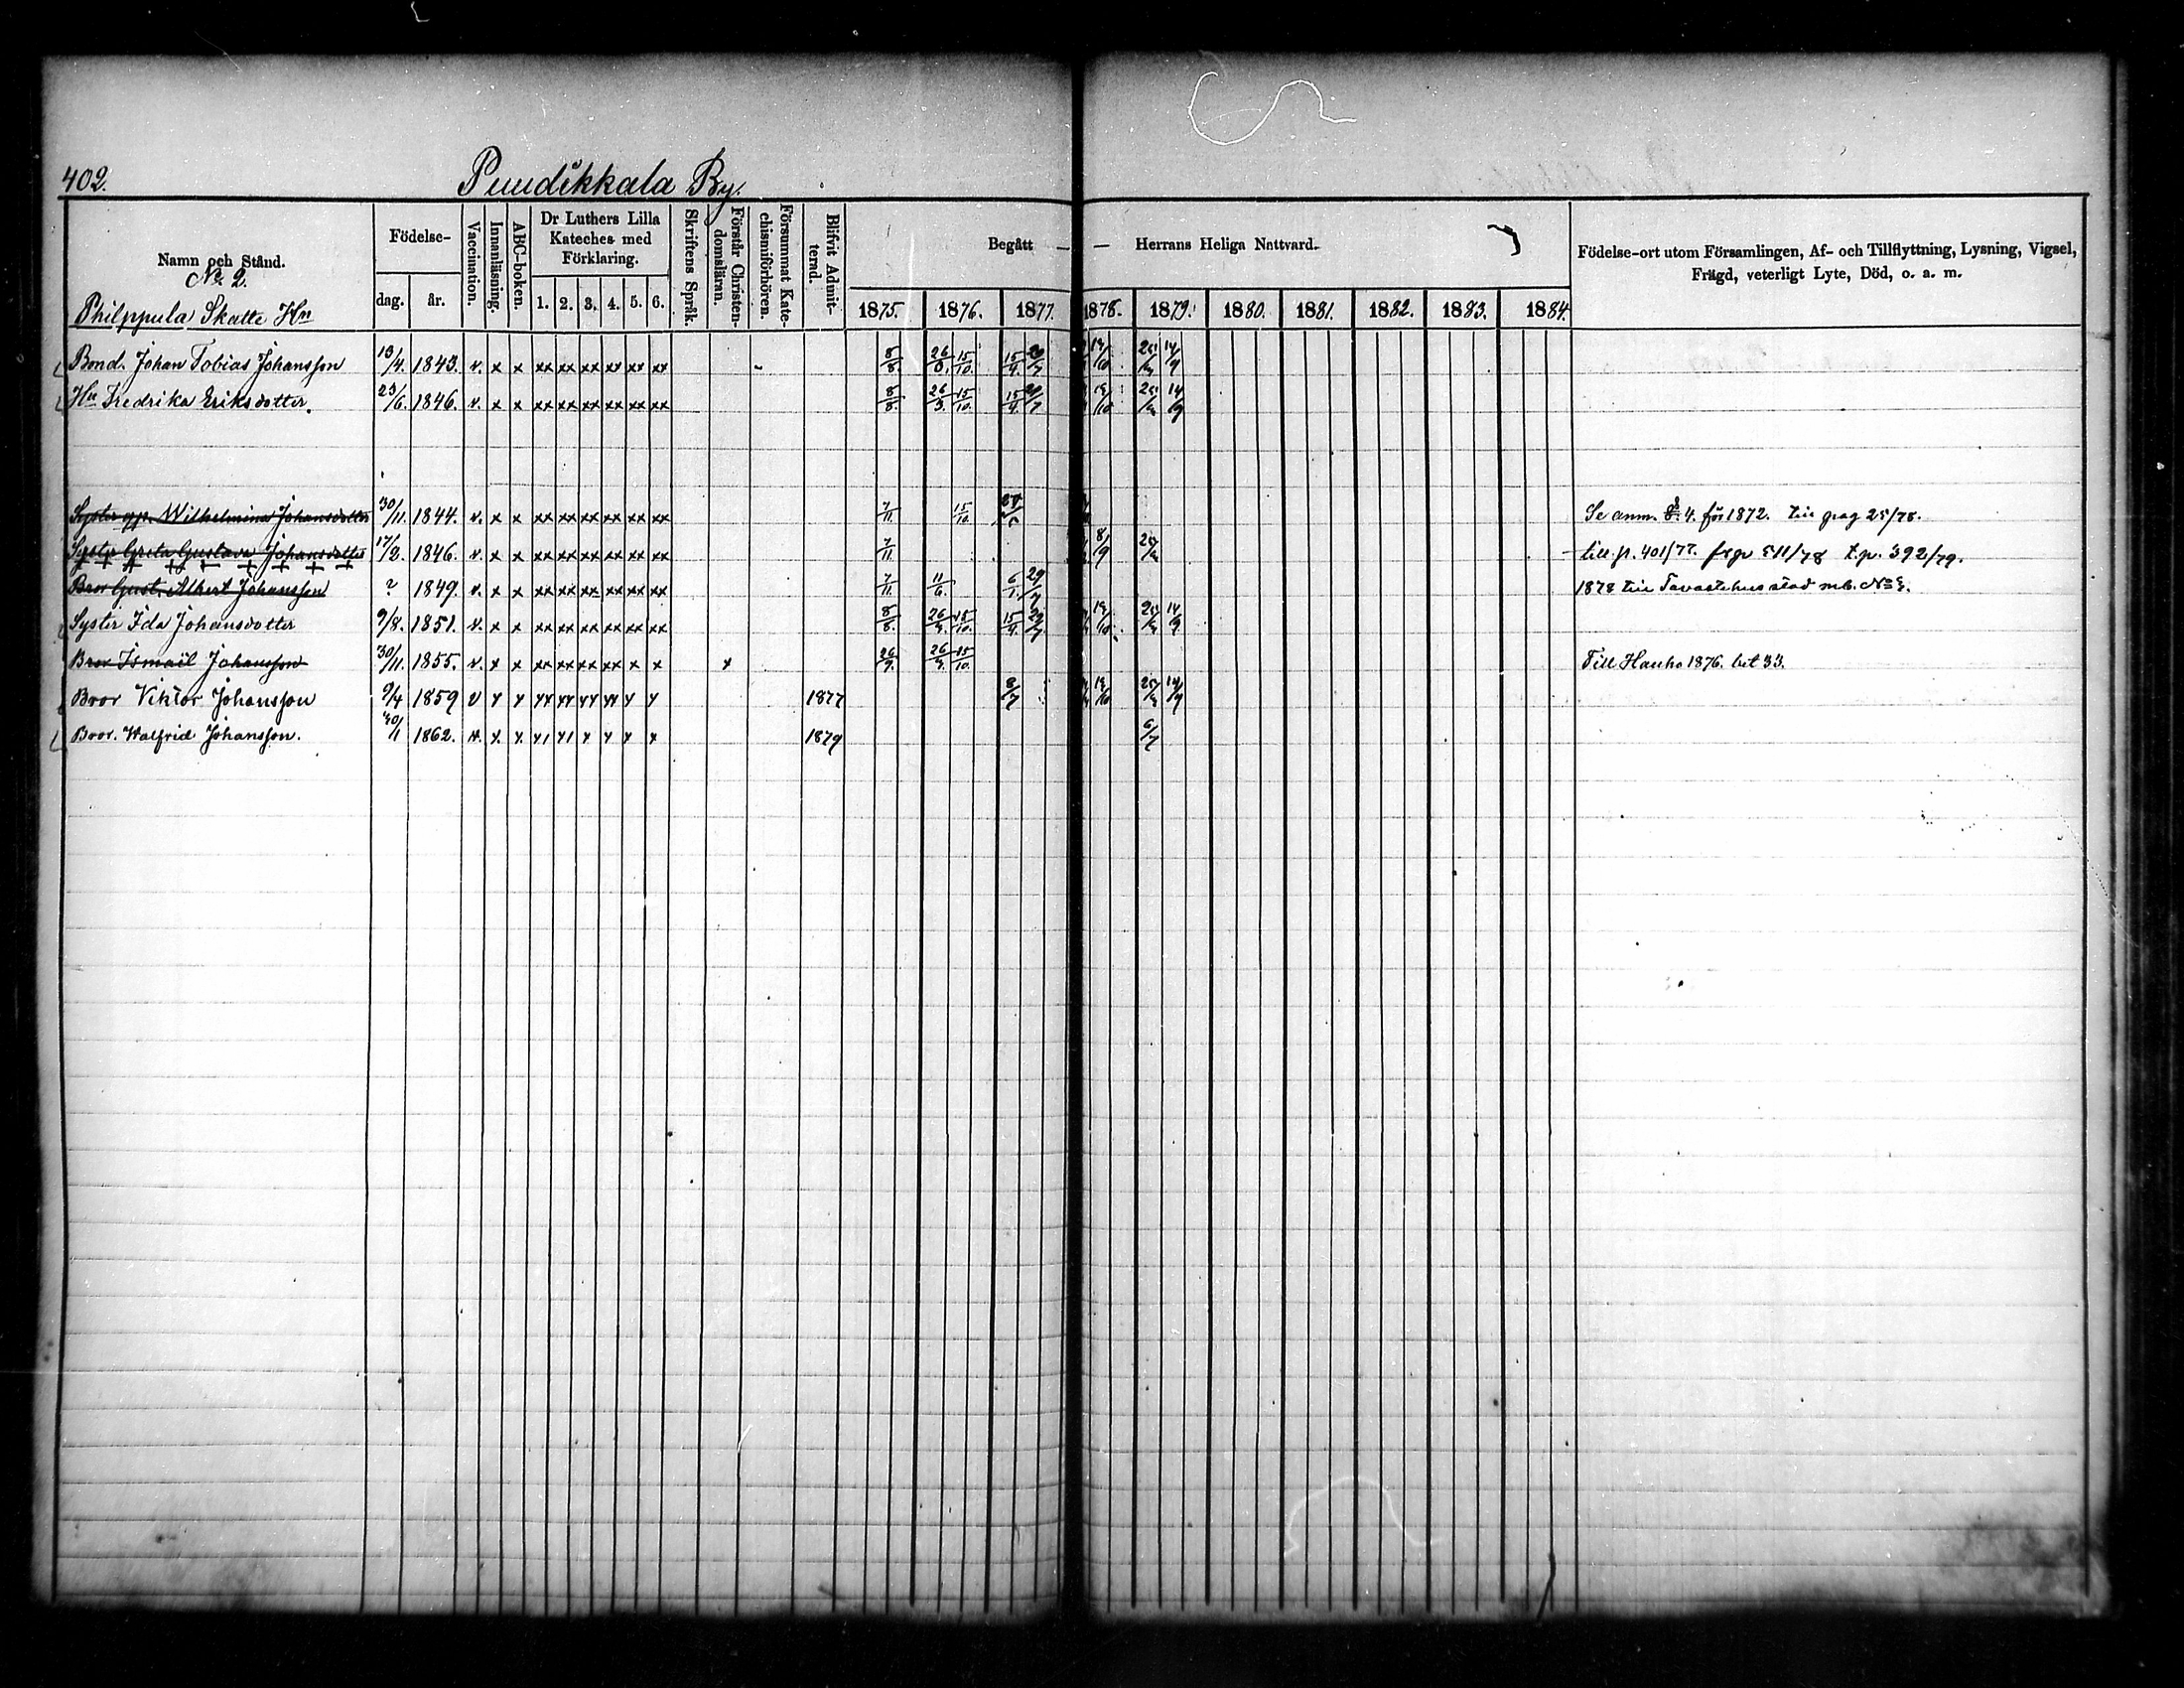 402.
Puudikkala By.
Namn och Stånd. Födelse- Vaccination. Innanläsning. ABC-boken. Dr Luthers Lilla Kateches med Förklaring. Skriftens Språk. Förstår Christen-domsläran. Försummat Kate-chismiförhören. Blifvit Admit-terad. Begått — — Herrans Heliga Nattvard. Födelse-ort utom Församlingen, Af- och Tillflyttning, Lysning, Vigsel, Frägd, veterligt Lyte, Död, o. a. m.
No 2.
dag. år. 1. 2. 3. 4. 5. 6. 1875. 1876. 1877. 1878. 1879. 1880. 1881. 1882. 1883. 1884.
Philppula Skatte Hn
Bond. Johan Tobias Johansson 13/4. 1843. v. x x xx xx xx xx xx xx - 8/8. 26/3. 15/10. 15/4.
Hu Fredrika Eriksdotter. 23/6. 1846. v. x x xx xx xx xx xx xx 8/8. 26/3. 15/10. 15/4.
Syster Wilhelmina Johansdotter 30/11. 1844. v. x x xx xx xx xx xx xx 7/11. 15/10. Se anm. 4. för 1872. till pag 25/78.
Syster Greta Gustava Johansdotter 17/2. 1846. v. x x xx xx xx xx xx xx 7/11 8/9 till p. 401/77. 511/78 t.p. 392/79.
Bror Gust. Albert Johansson ? 1849. v. x x xx xx xx xx xx xx 7/11. 11/6. 6/1. 29/7 1878 till Tavastehus stad mb. No
Syster Ida Johansdotter 9/8. 1851. v. x x xx xx xx xx xx xx 8/8. 15/10. 15/4. 29/7
Bror Ismaël Johansson 30/11. 1855. v. x x xx xx xx xx x x x 26/9. 15/10. Till Hauho 1876. bet 33.
Bror Viktor Johansson 9/4 1859 v x x xx xx xx xx x x 1877 8/7
Bror. Walfrid Johansson. 1862. v. x x x1 x1 x x x x 1879 6/7